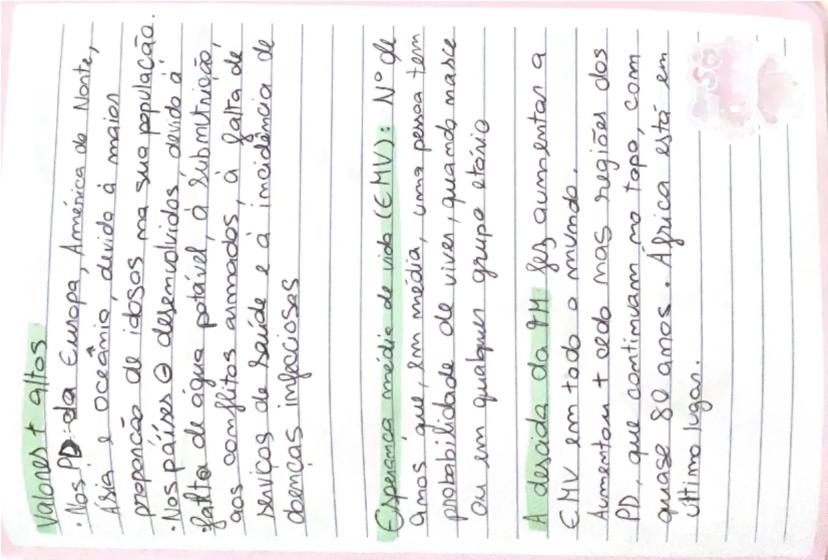 Valores + altos
• Nos PD da Europa, América do Norte,
Ásia e oceânia, devido á maior
proporção de idosos na sua população.
• Nos países ⊖ desenvolvidos devido á
falta de água potável, á submutrição,
aos conflitos armados, á falta de
serviços de saúde e á incidência de
doenças infeciosas
Esperança média de vida (EMV): Nº de
anos que, em média, uma pessoa tem
probabilidade de viver, quando nasce
ou em qualquer grupo etário
A descida da TM fez aumentar a
EMV em todo o mundo.
Aumentou + cedo nas regiões dos
PD, que continuam no topo, com
quase 80 anos. África está em
último lugar.